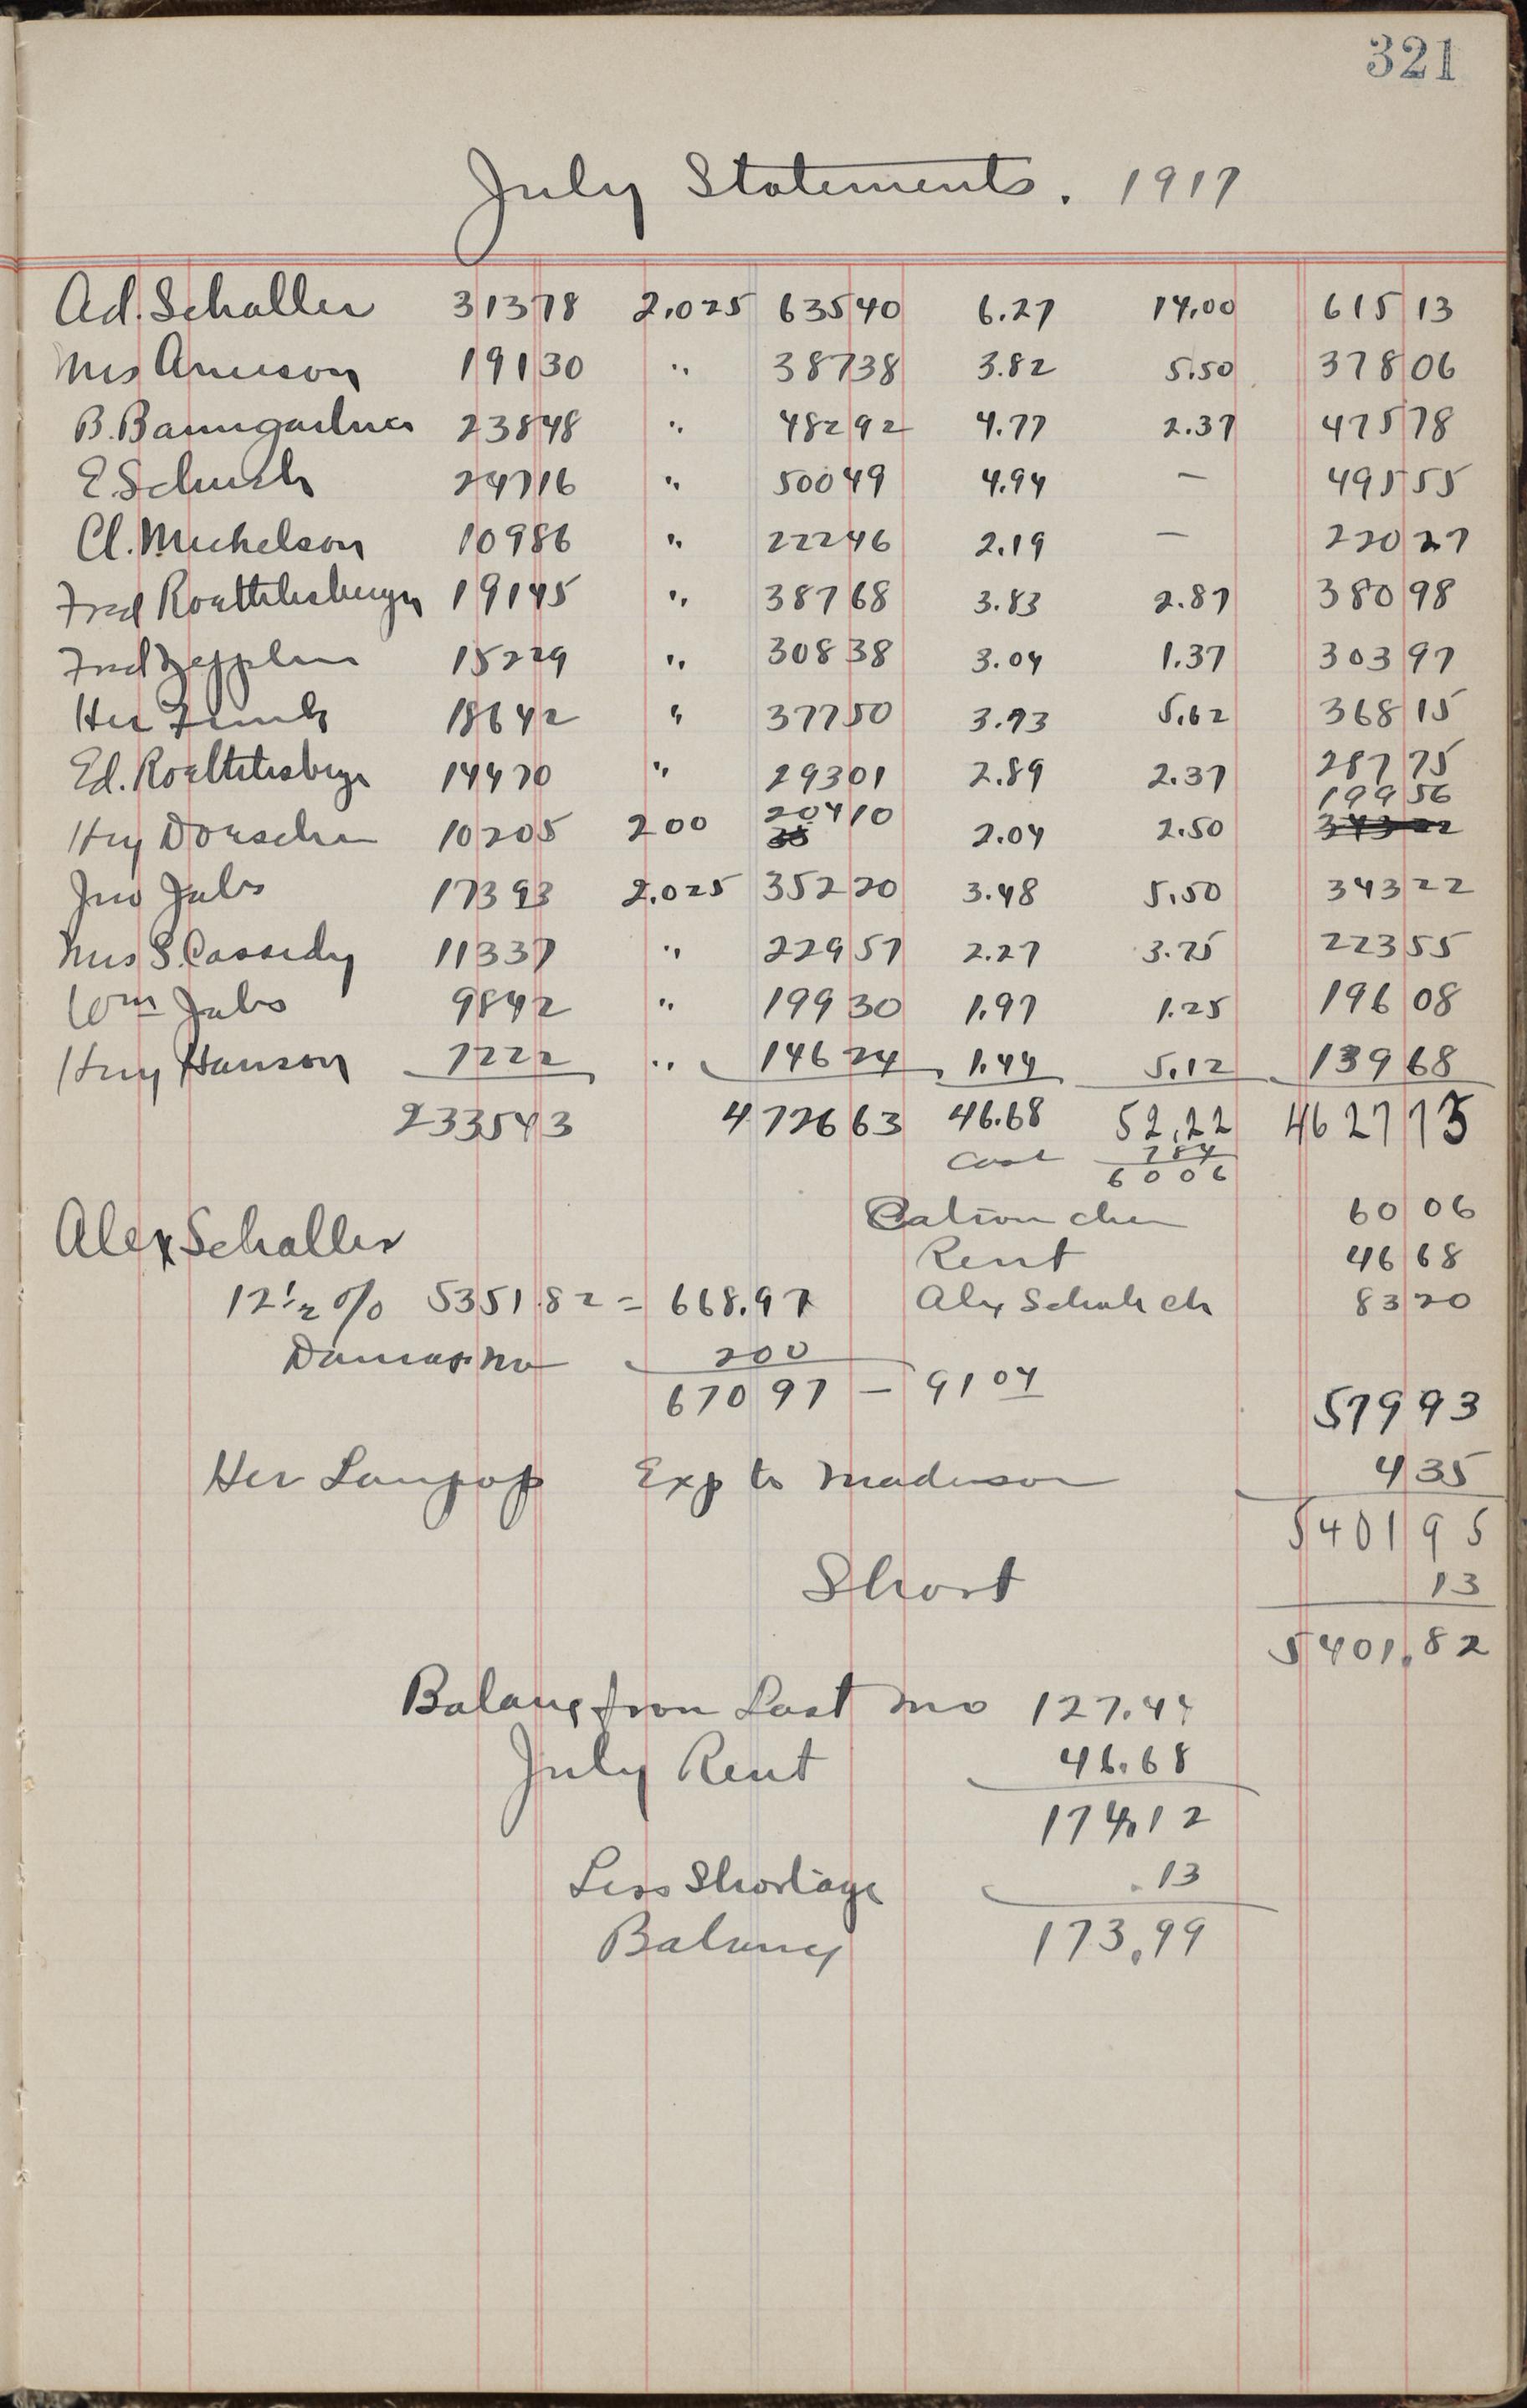 321
July Statements. 1917
Ad. Schaller 31378 2.025 635 40 6.27 14.00 615 13
Mrs Arneson 19130 " 387 38 3.82 5.50 378 06
B. Baumgartner 23848 " 482 92 4.77 2.37 475 78
E. Schuch 24716 " 500 49 4.94 — 495 55
Cl. Michelson 10986 " 222 46 2.19 — 220 27
Fred Roethlisberger 19145 " 387 68 3.83 2.87 380 98
Fred Zepplin 15229 " 308 38 3.04 1.37 303 97
Her 18642 " 377 50 3.73 5.62 368 15
Ed. Roethlisberger 14470 " 293 01 2.89 2.37 287 75
Hry 10205 200 204 10 2.04 2.50 199 56
Jno Jabs 17393 2.025 352 20 3.48 5.50 343 22
Mrs S. Cassidy 11337 " 229 57 2.27 3.75 223 55
Wm Jabs 9842 " 199 30 1.97 1.25 196 08
Hry Hanson 7222 " 146 24 1.44 5.12 139 68
233543 4726 63 46.68 52.22 4627 73
784
60 06
60 06
Alex Schaller
Rent 46 68
12 1/2 % 5351.82 = 668.97 Alex Schuhch 83 20
200
670 97 — 91 04
579 93
Her Exp to Madison 4 35
5401 95
Short 13
5401.82
Balance from Last mo 127.44
July Rent 46.68
174.12
Less Shortage .13
Balance 173.99